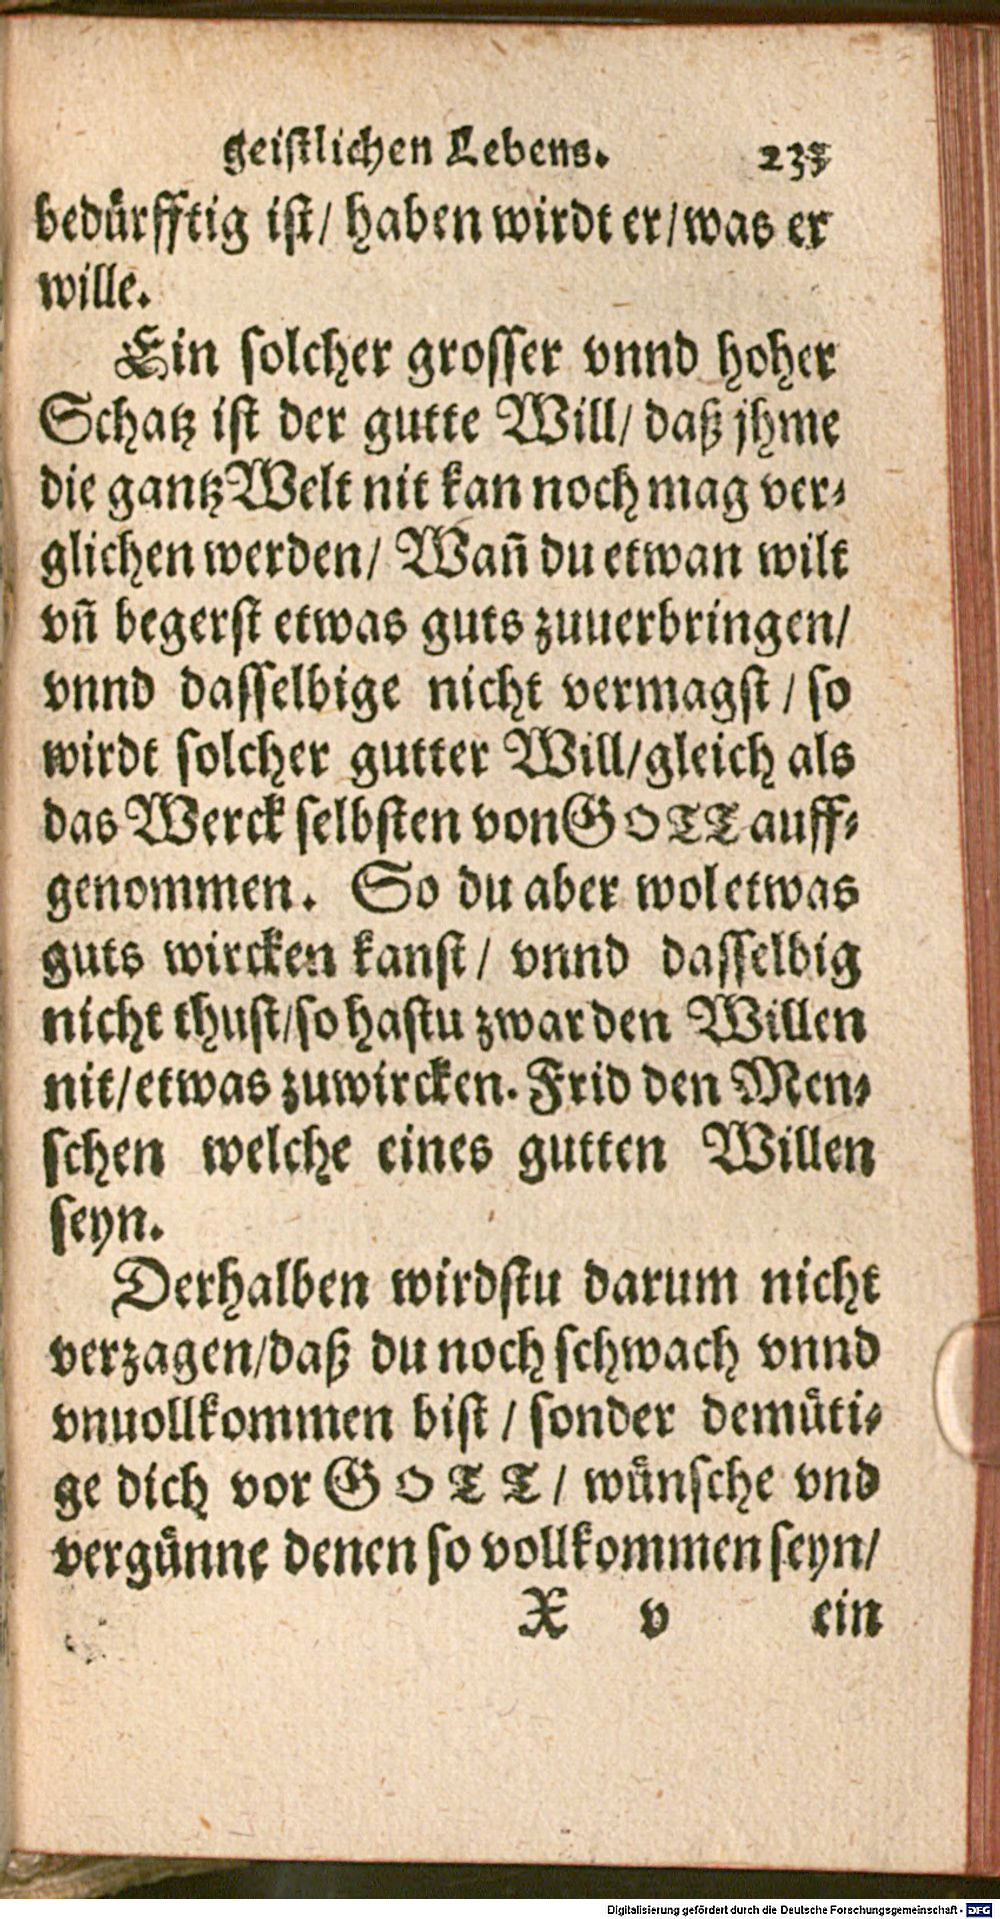 geistlichen Lebens. 233
bedürfftig ist/ haben wirdt er/ was er
wille.
Ein solcher grosser vnnd hoher
Schatz ist der gutte Will/ daß jhme
die gantz Welt nit kan noch mag ver-
glichen werden/ Wañ du etwan wilt
vñ begerst etwas guts zuuerbringen/
vnnd dasselbige nicht vermagst / so
wirdt solcher gutter Will/ gleich als
das Werck selbsten von GOTT auff-
genommen. So du aber wol etwas
guts wircken kanst / vnnd dasselbig
nicht thust/ so hastu zwar den Willen
nit/ etwas zuwircken. Frid den Men-
schen welche eines gutten Willen
seyn.
Derhalben wirdstu darum nicht
verzagen/ daß du noch schwach vnnd
vnuollkommen bist / sonder demüti-
ge dich vor GOTT / wünsche vnd
vergünne denen so vollkommen seyn/
X v ein
Digitalisierung gefördert durch die Deutsche Forschungsgemeinschaft - DFG